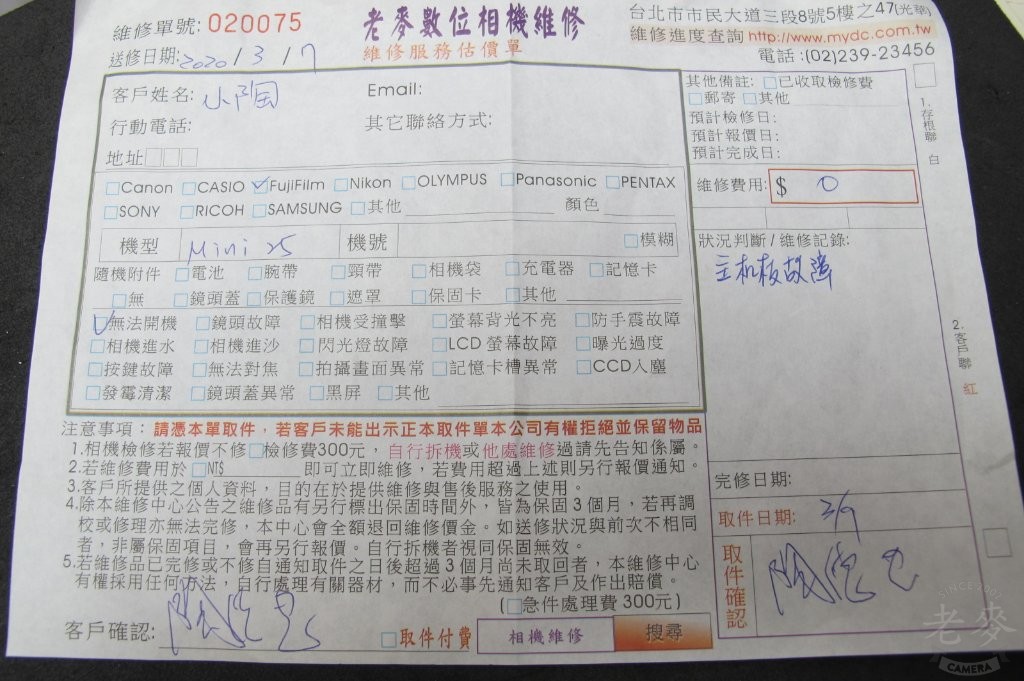 維修單號: 020075
老麥數位相機維修
維修服務估價單
台北市市民大道三段8號5樓之47(光華)
維修進度查詢 http://www.mydc.com.tw
電話:(02)239-23456
送修日期: 2020/3/7
客戶姓名: 小陶
Email:
行動電話:
其它聯絡方式:
地址
□Canon □CASIO ☑FujiFilm □Nikon □OLYMPUS □Panasonic □PENTAX
□SONY □RICOH □SAMSUNG □其他 顏色
機型 Mini 25 機號 □模糊
隨機附件 □電池 □腕帶 □頸帶 □相機袋 □充電器 □記憶卡
□無 □鏡頭蓋 □保護鏡 □遮罩 □保固卡 □其他
☑無法開機 □鏡頭故障 □相機受撞擊 □螢幕背光不亮 □防手震故障
□相機進水 □相機進沙 □閃光燈故障 □LCD 螢幕故障 □曝光過度
□按鍵故障 □無法對焦 □拍攝畫面異常 □記憶卡槽異常 □CCD入塵
□發霉清潔 □鏡頭蓋異常 □黑屏 □其他
其他備註: □已收取檢修費
□郵寄 □其他
預計檢修日:
預計報價日:
預計完成日:
維修費用: $ 0
狀況判斷/維修記錄:
主机板故障
完修日期:
取件日期: 3/9
取件確認
1.存根聯 白
2.客戶聯 紅
注意事項：請憑本單取件，若客戶未能出示正本取件單本公司有權拒絕並保留物品
1.相機檢修若報價不修□檢修費300元，自行拆機或他處維修過請先告知係屬。
2.若維修費用於 □NT$ 即可立即維修，若費用超過上述則另行報價通知。
3.客戶所提供之個人資料，目的在於提供維修與售後服務之使用。
4.除本維修中心公告之維修品有另行標出保固時間外，皆為保固3個月，若再調
校或修理亦無法完修，本中心會全額退回維修價金。如送修狀況與前次不相同
者，非屬保固項目，會再另行報價。自行拆機者視同保固無效。
5.若維修品已完修或不修自通知取件之日後超過3個月尚未取回者，本維修中心
有權採用任何方法，自行處理有關器材，而不必事先通知客戶及作出賠償。
(□急件處理費 300元)
客戶確認:
□取件付費
相機維修 搜尋
老麥
CAMERA